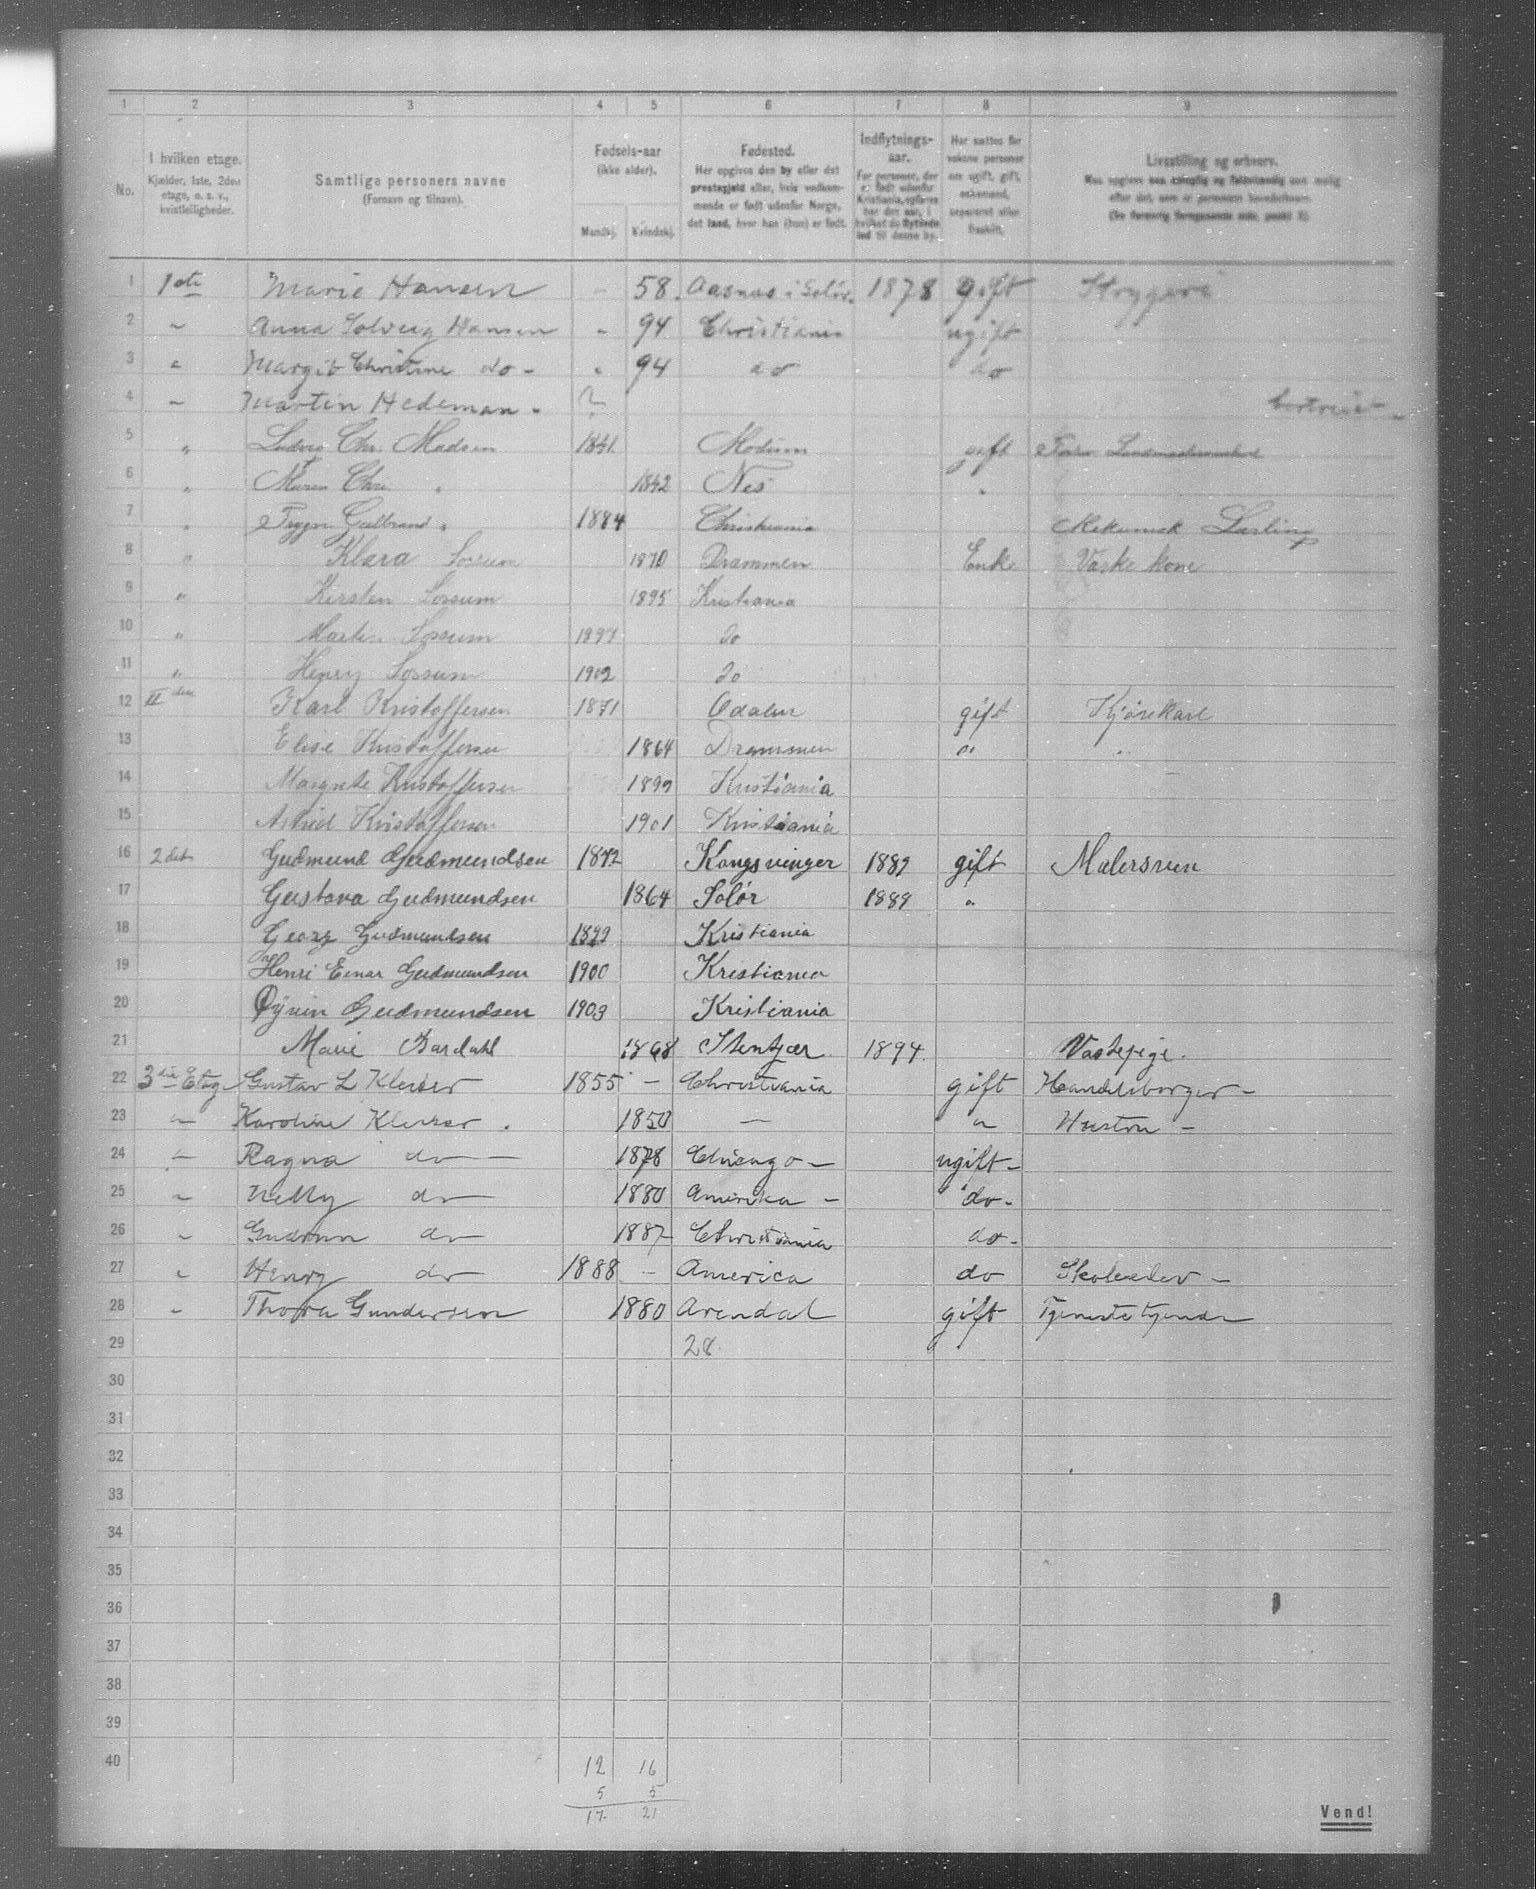 1 2 3 4 5 6 7 8 9
No.
I hvilken etage.
Kjælder, 1ste, 2den etage, o. s. v., kvistleiligheder.
Samtlige personers navne
(Fornavn og tilnavn).
Fødsels-aar
(ikke alder).
Mandkj. Kvindekj.
Fødested.
Her opgives den by eller det
prestegjeld eller, hvis vedkom-
mende er født udenfor Norge,
det land, hvor han (hun) er født.
Indflytnings-
aar.
For personer, der
er født udenfor
Kristiania, opføres
her det aar, i
hvilket de flyttede
ind til denne by.
Her sættes for
voksne personer
om ugift, gift,
enkemand,
separeret eller
fraskilt.
Livsstilling og erhverv.
1 1ste Marie Hansen - 58. Aasnes i Solør. 1878 gift Strygeri
2 " Anna Solveig Hansen " 94 Christiania ugift
3 " Margit Christine do - " 94 do do
4 " Martin Hedeman - ? bortreist -
5 " Ludvig Chr. Madsen 1841. Modum gift
6 " Maren Chr. " 1842 Nes "
7 " Trygve Gulbrand " 1884 Christiania Mekanisk Lærling
8 " Klara Sørum 1870 Drammen Enke Vaske kone
9 " Kirsten Sørum 1895 Kristiania
10 " Martin Sørum 1897 do
11 " Henry Sørum 1902 do
12 II den Karl Kristoffersen 1871 Odalen gift Kjørekarl
13 Elise Kristoffersen 1864 Drammen " "
14 Margrete Kristoffersen 1899 Kristiania
15 Astrid Kristoffersen 1901 Kristiania
16 2det Gudmund Gudmundsen 1872 Kongsvinger 1889 gift Malersven
17 Gustava Gudmundsen 1864 Solør 1889 "
18 Georg Gudmundsen 1899 Kristiania
19 Henri Einar Gudmundsen 1900 Kristiania
20 Øyvin Gudmundsen 1903 Kristiania
21 Marie Bardahl 1868 Stenkjær 1894. Vaskepige.
22 3die Etag Gustav L Kleiser 1855 - Christiania gift Handelsborger -
23 " Karoline Kleiser . 1850 — " Hustru -
24 " Ragna do — 1878 Chicago - ugift -
25 " Nelly do 1880 Amerika - do -
26 " Gudrun do 1887- Christiania do -
27 " Henry do 1888 - America do Skoleelev -
28 " Thora Gundersen 1880 Arendal gift Tjenestetjener
29 28.
30
31
32
33
34
35
36
37
38
39
40 12 16
5 5
17. 21
Vend!